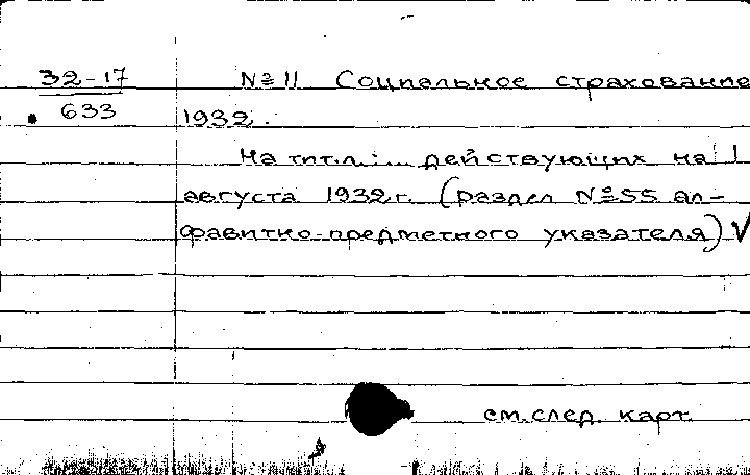 32-17 № 11 Социальное страхование
633 1932.
На тит.л.:... действующих на 1
августа 1932 г. (раздел № 55 ал-
фавитно-предметного указателя) V
см. след. карт.